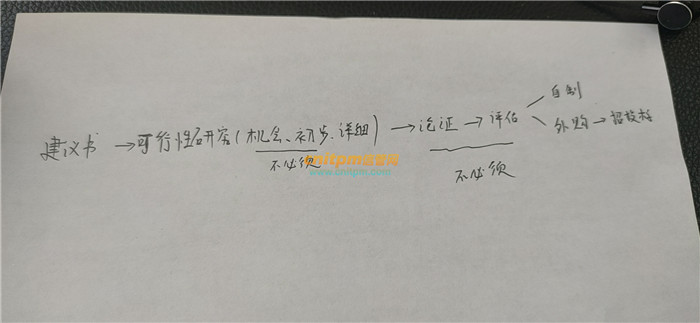 建议书 → 可行性研究(机会、初步、详细) → 论证 → 评估
自制
外购 → 招投标
不必须
不必须
www.cnitpm.com